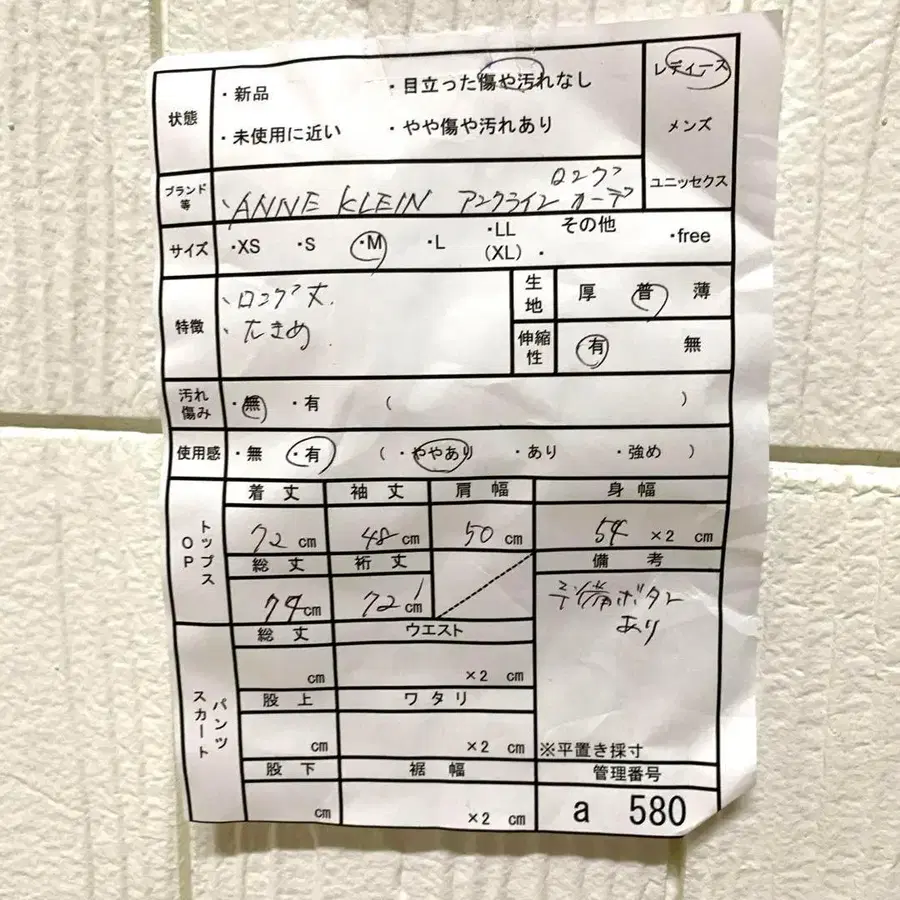 状態
・新品 ・目立った傷や汚れなし
・未使用に近い ・やや傷や汚れあり
レディース
メンズ
ユニッセクス
ブランド等
・ANNE KLEIN アンクライン ロング カーデ
サイズ ・XS ・S ・M ・L ・LL (XL) ・ その他 ・free
特徴
・ロング丈
・大きめ
生地 厚 普 薄
伸縮性 有 無
汚れ傷み ・無 ・有 ( )
使用感 ・無 ・有 ( ・ややあり ・あり ・強め )
トップス OP
着丈 袖丈 肩幅 身幅
72 cm 48 cm 50 cm 54 ×2 cm
総丈 裄丈 備考
74 cm 72 cm
予備ボタン
あり
パンツ スカート
総丈 ウエスト
cm ×2 cm
股上 ワタリ
cm ×2 cm
※平置き採寸
股下 裾幅 管理番号
cm ×2 cm a 580